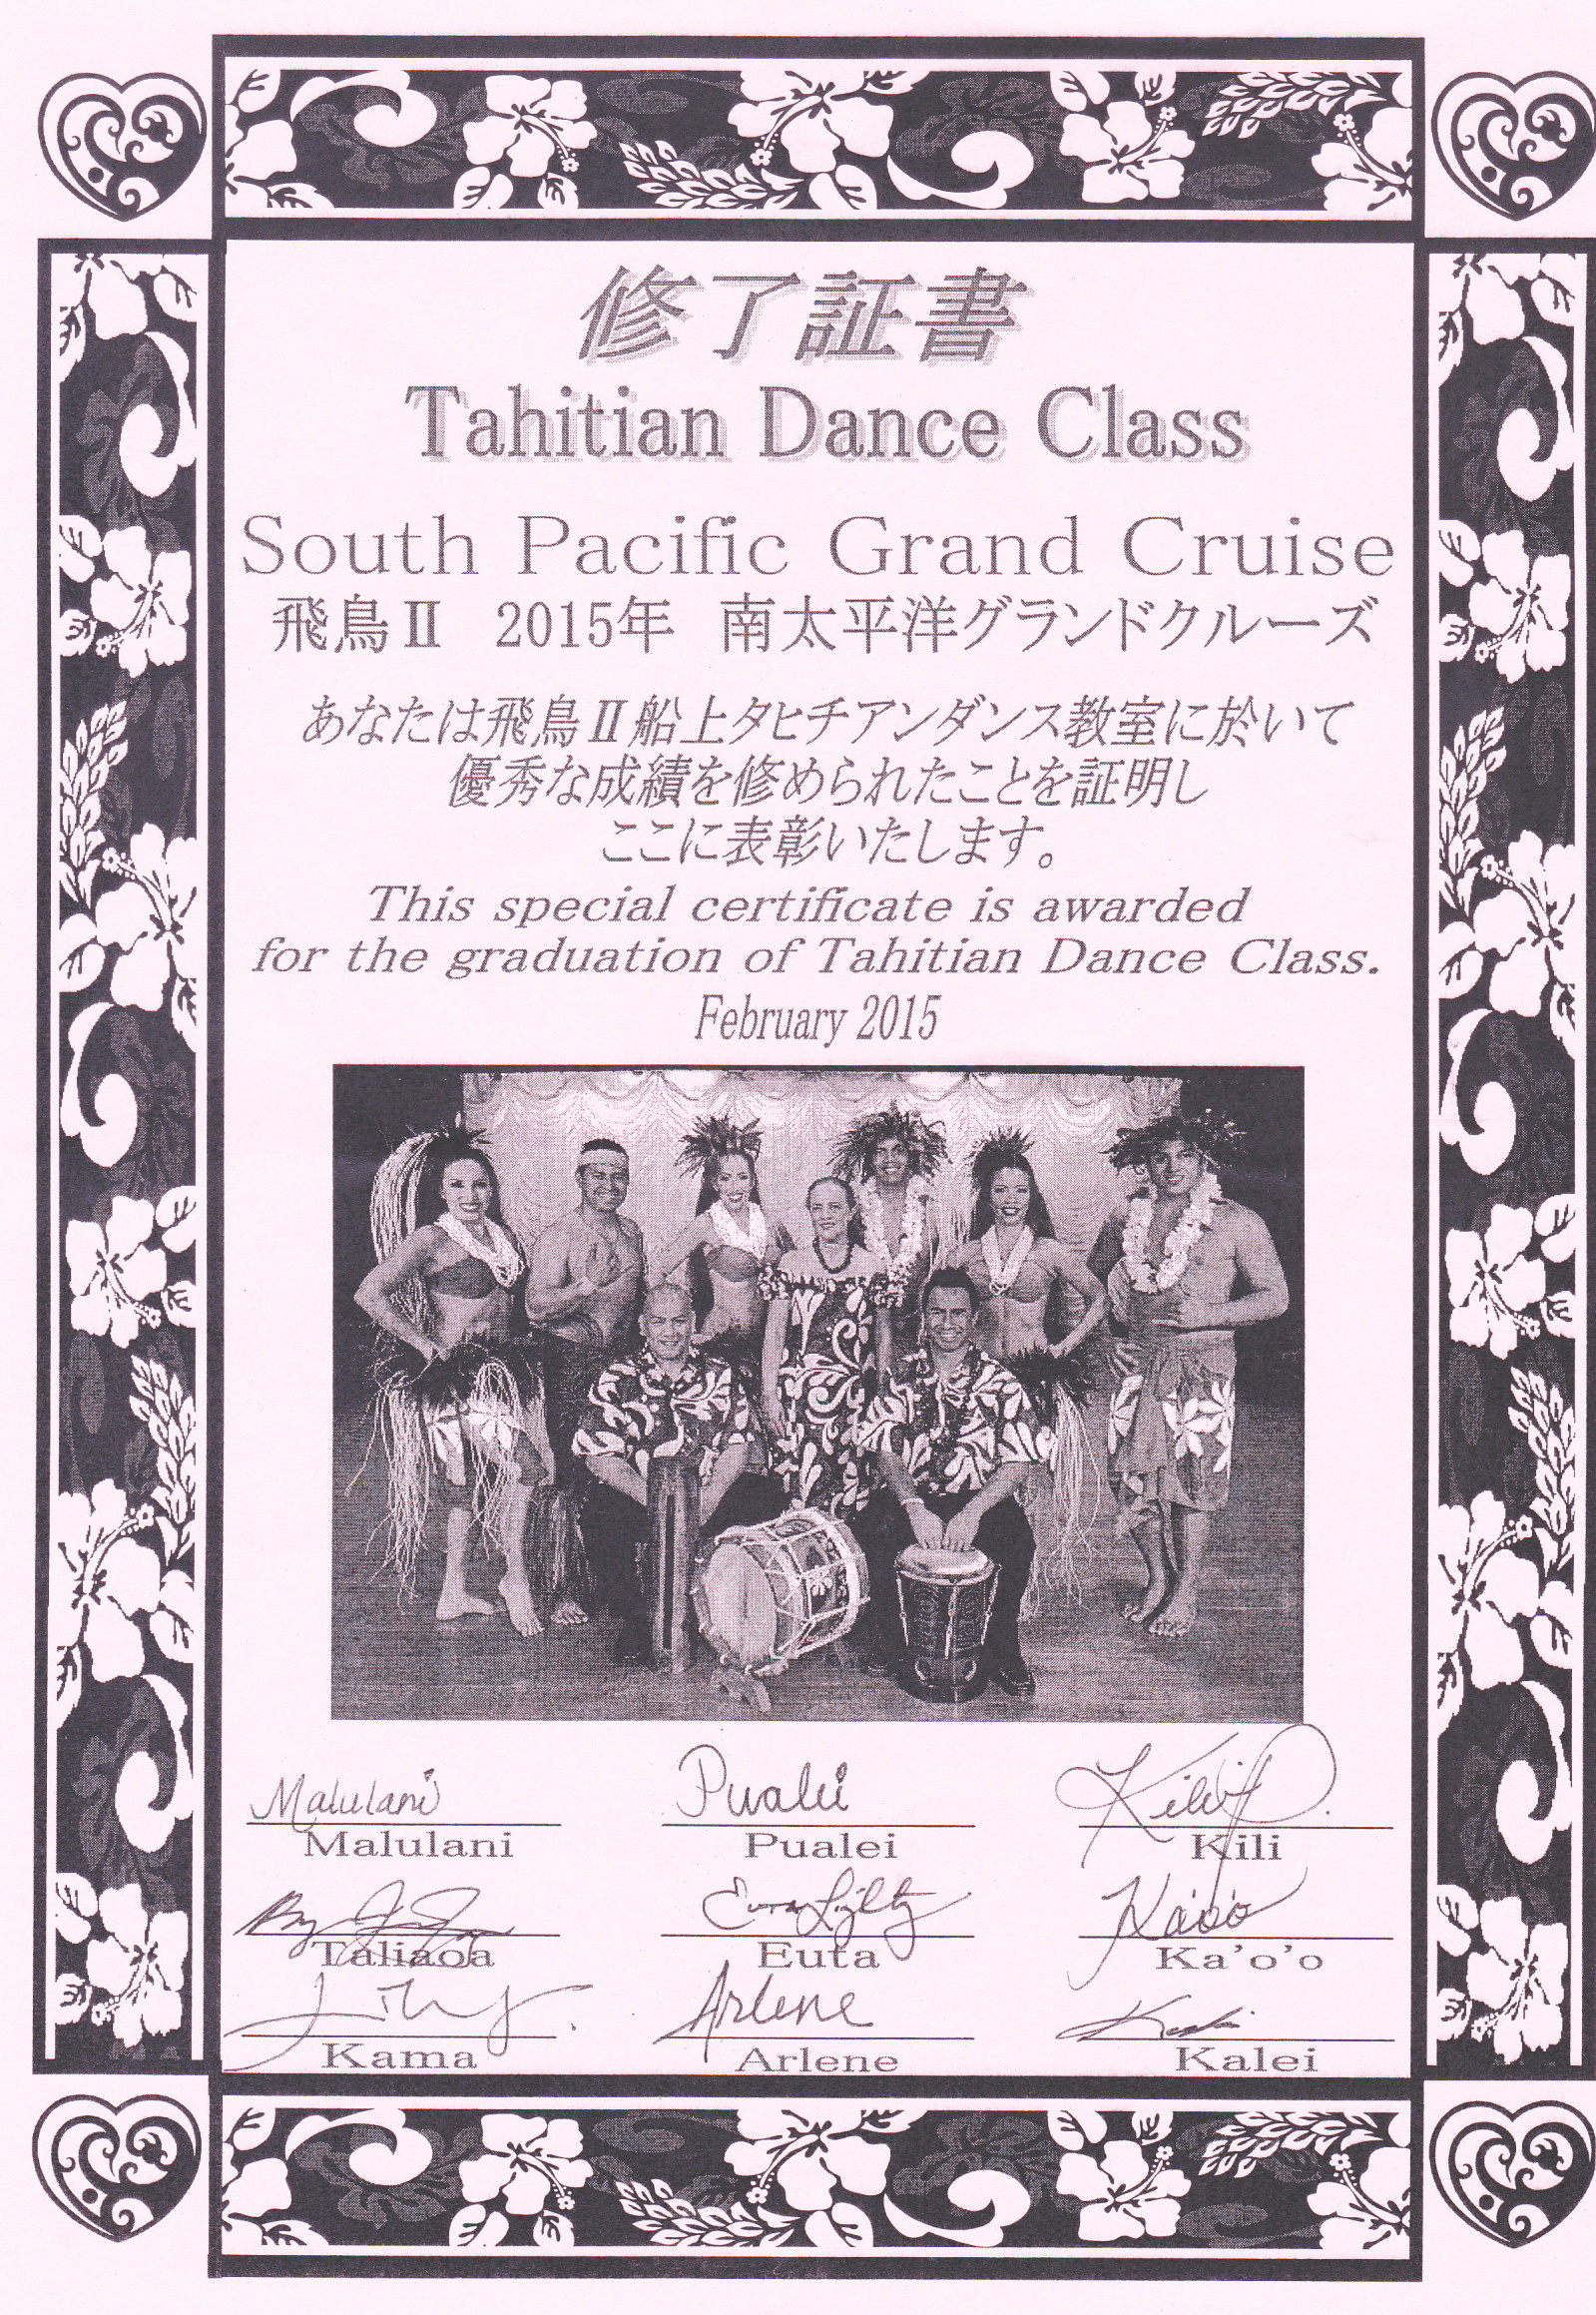 修了証書
Tahitian Dance Class
South Pacific Grand Cruise
飛鳥Ⅱ 2015年 南太平洋グランドクルーズ
あなたは飛鳥Ⅱ船上タヒチアンダンス教室に於いて
優秀な成績を修められたことを証明し
ここに表彰いたします。
This special certificate is awarded
for the graduation of Tahitian Dance Class.
February 2015
Malulani Pualei Kili
Malulani Pualei Kili
Euta Ka'o'o
Taliaoa Euta Ka'o'o
Arlene
Kama Arlene Kalei